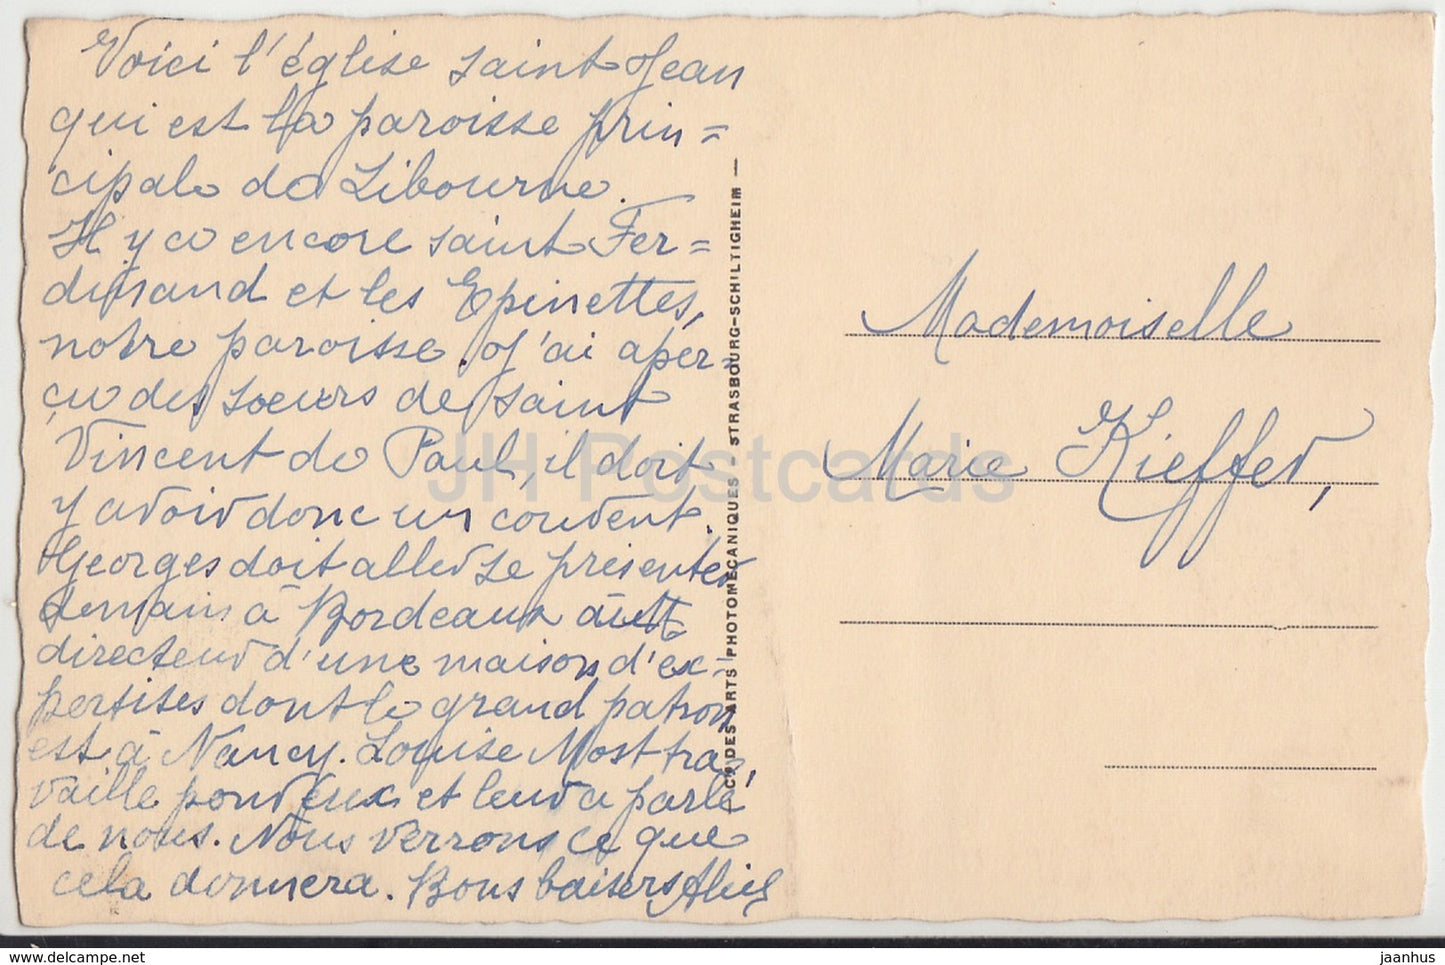 Voici l'église saint Jean
qui est la paroisse prin=
cipale de Libourne.
Il y a encore saint Fer=
dinand et les Epinettes,
notre paroisse. J'ai aper=
çu des soeurs de saint
Vincent de Paul, il doit
y avoir donc un couvent.
Georges doit aller se présenter
demain à Bordeaux au
directeur d'une maison d'ex-
pertises dont le grand patron
est à Nancy. Louise Most tra-
vaille pour eux et leur a parlé
de nous. Nous verrons ce que
cela donnera. Bons baisers Alice
CIE DES ARTS PHOTOMECANIQUES - STRASBOURG-SCHILTIGHEIM —
Mademoiselle
Marie Kieffer,
JH Postcards
delcampe.net
jaanhus